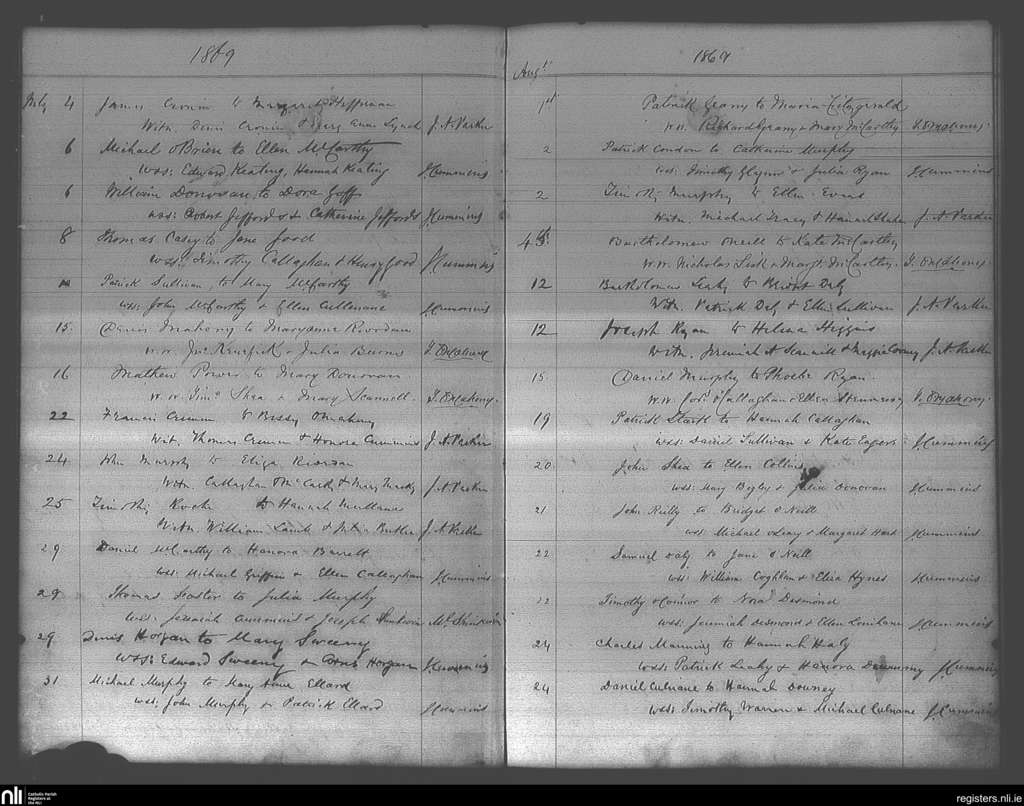 1869
July 4 James Cronin to Margaret Heffernan
With. Denis Cronin & Mary Anne Lynch J. A. Parker
6 Michael O'Brien to Ellen McCarthy
wss: Edward Keating, Hannah Keating J. Cummins
6 William Donovan to Dora Goff
wss: Robert Jeffords & Catherine Jeffords J. Cummins
8 Thomas Casey to Jane Good
wss: Timothy Callaghan & Henry Good J. Cummins
Patrick Sullivan to Mary McCarthy
wss: John McCarthy & Ellen Cullinane J. Cummins
15. Denis Mahony to Maryanne Riordan
w.w. & Julia T. O'Mahony
16 Mathew Power to Mary Donovan
w.w. Timy Shea & Mary Scannell. T. O'Mahony.
22 Francis to Bessy O'Mahony
Wit. Thomas & Honora J. A. Parker
24 John Murphy to Eliza Riordan
With. Callaghan McCarthy & Mary J. A. Parker
25 Timothy Roche to Hannah Mullane
With William Lamb & Julia Butler J. A. Parker
29 Daniel McCarthy to Hanora Barrett
wss: Michael Griffin & Ellen Callaghan J. Cummins
29 Thomas to Julia Murphy
wss: & Joseph
29 Denis Horgan to Mary Sweeny
wss: Edward Sweeny & Horgan J. Cummins
31 Michael Murphy to Mary Anne Ellard
wss: John Murphy & Patrick Ellard J. Cummins
1869
Augt
1st Patrick Geany to Maria Fitzgerald
w.w. Richard Geany & Mary McCarthy T. O'Mahony.
2 Patrick Condon to Catherine Murphy
wss: Timothy Glynn & Julia Ryan J. Cummins
2 Timothy Murphy to Ellen Evans
With. Michael & Hannah J. A. Parker
4th: Bartholomew O'Neill to Kate McCarthy
w.w. Nicholas & Margt McCarthy. T. O'Mahony.
12 Bartholomew Leahy to Daly
With Patrick Daly & Ellen Sullivan J. A. Parker
12 Joseph Ryan to Helena Higgins
With. Jeremiah A Scannell & J. A. Parker
15. Daniel Murphy to Phoebe Ryan.
w.w. O'Callaghan & Ellen Hennessy T. O'Mahony.
19 Patrick to Hannah Callaghan
wss: Daniel Sullivan & Kate J. Cummins
20 John Shea to Ellen Collins
wss: Mary Begley & Julia Donovan J. Cummins
21 John Reilly to Bridget O'Neill
wss: Michael O'Leary & Margaret J. Cummins
22 Samuel Daly to Jane O'Neill
wss: William Coghlan & Eliza Hynes J. Cummins
22 Timothy O'Connor to Nora Desmond
wss: Jeremiah Desmond & Ellen Linihane J. Cummins
24 Charles Manning to Hannah Healy
wss: Patrick Leahy & Hanora J. Cummins
24 Daniel Culnane to Hannah Downey
wss: Timothy Warren & Michael Culnane J. Cummins
nli Catholic Parish
Registers at
the NLI
registers.nli.ie